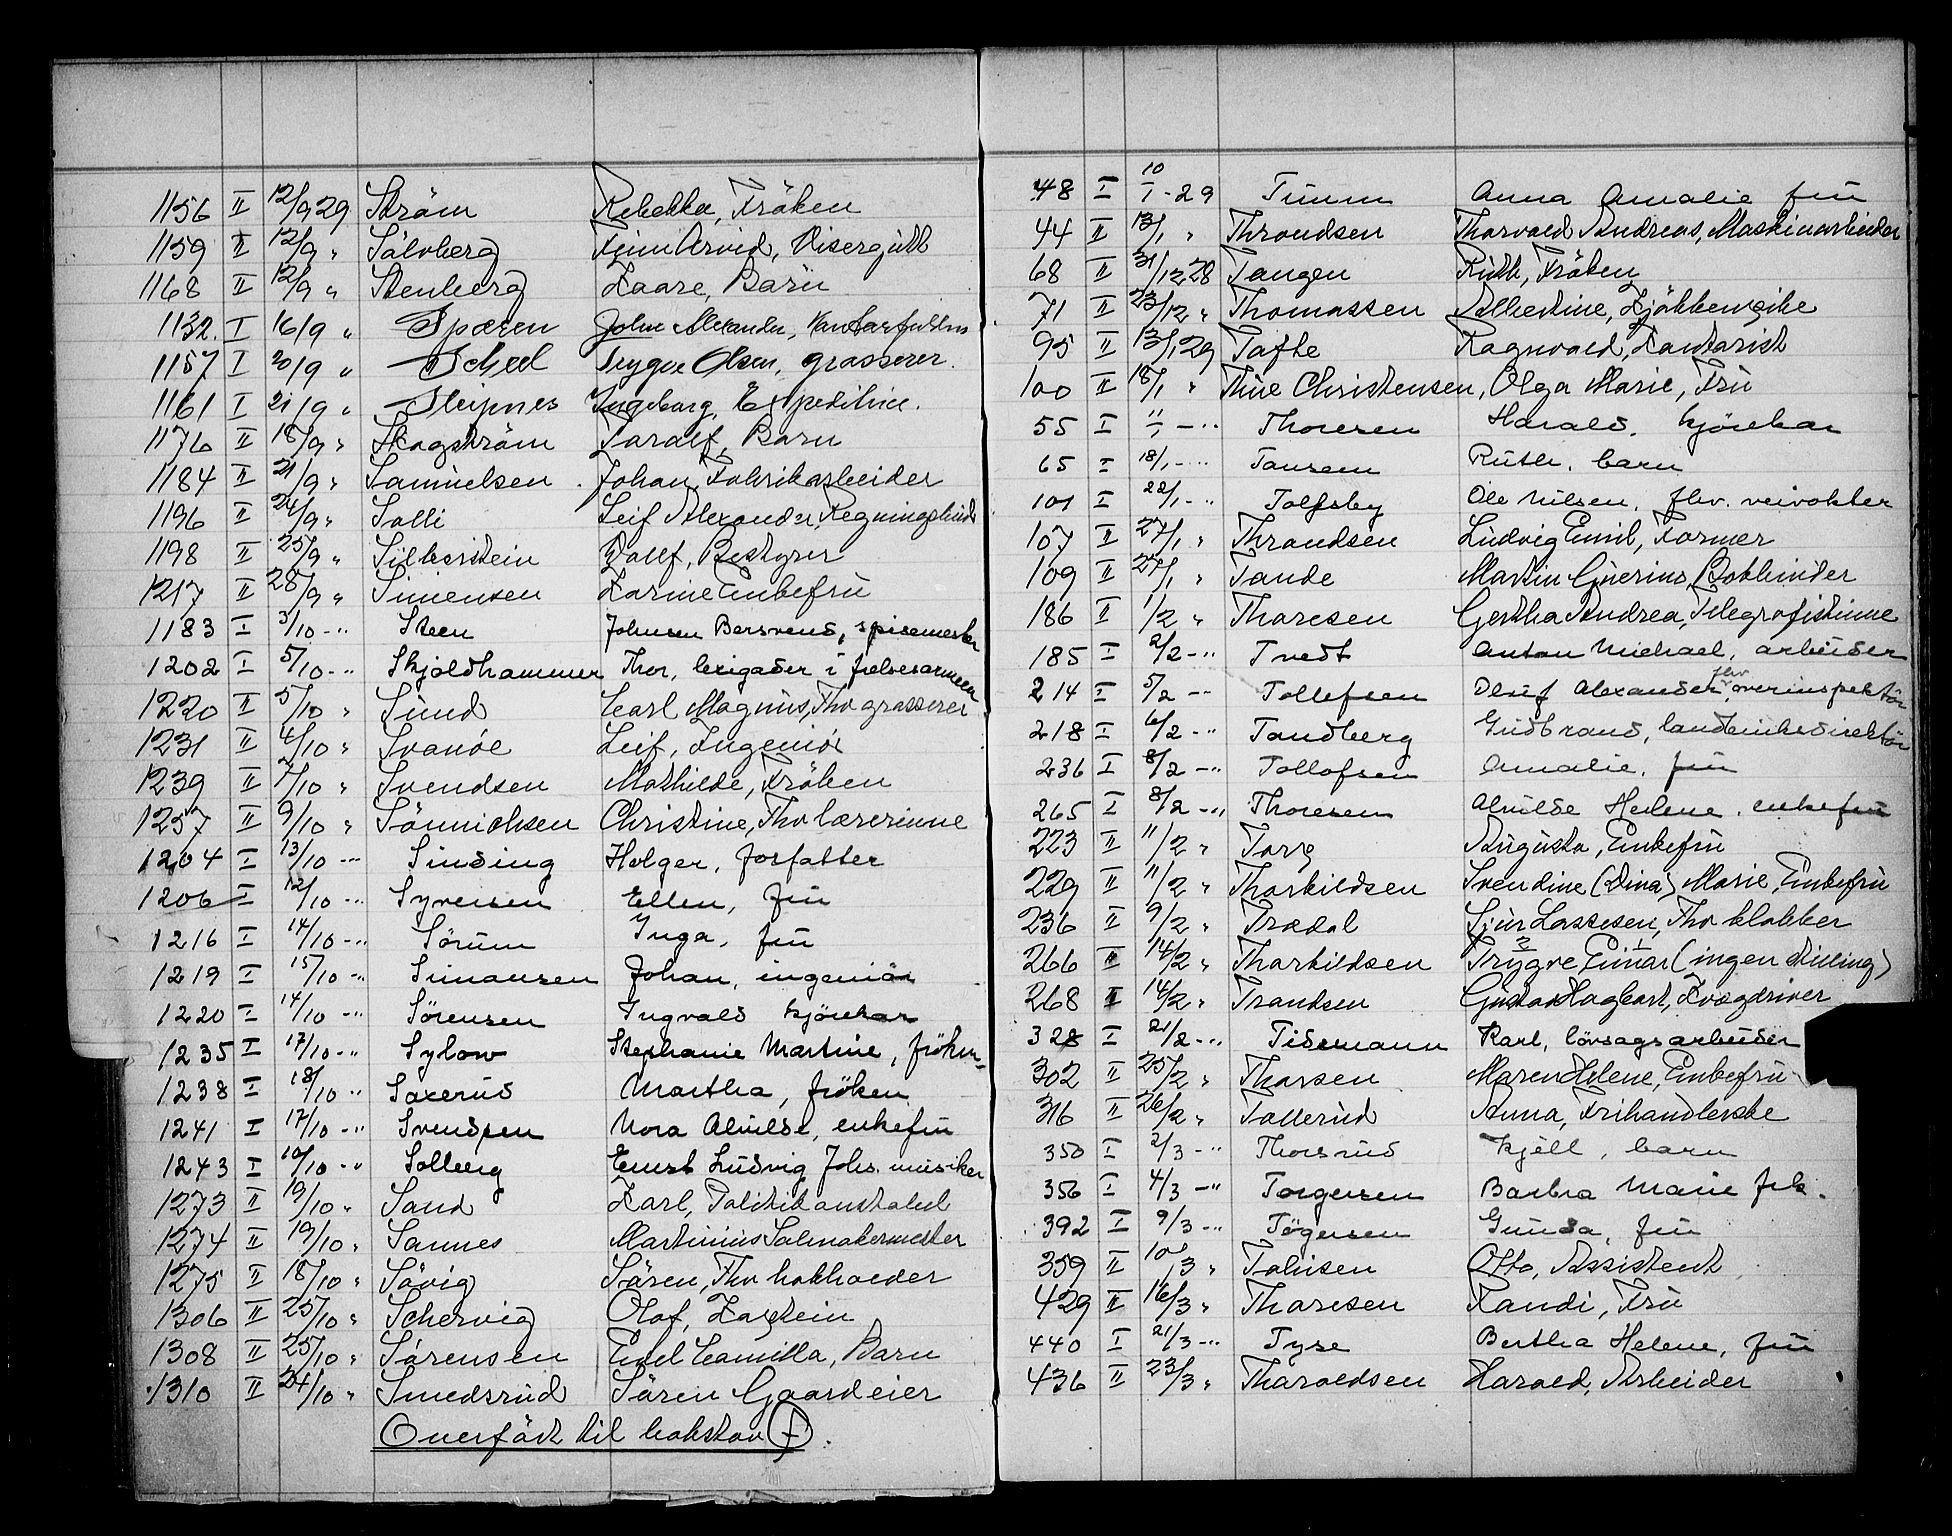 1156 II 12/9 29 Ström Rebekka, Fröken
1159 II 12/9 " Sälvberg Finn Arvid, Visergutt
1168 II 12/9 " Stenberg Kaare, Barn
1132. I 16/9 " Spæren John Alexander, Kontorfuldm
1157 I 20/9 " Scheel Trygve Olsen, grosserer.
1161 I 21/9 " Sleipnes Ingeborg, Expeditrice.
1176 II 18/9 " Skogström Toralf, Barn
1184 II 21/9 " Samuelsen Johan, Fabrikarbeider
1196 II 24/9 " Solli Leif Alexander, Regningsbud
1198 II 25/9 " Silberstein Wolf, Bestyrer
1217 II 28/9 " Simensen Karine Enkefru
1183 I 3/10 -" Steen Johnsen Bersvend, spisemester
1202 I 5/10 -" Skjoldhammer Thor, brigader i frelsesarmeen
1220 II 5/10 " Sund Carl Magnus, Fhv grosserer
1231 II 4/10 " Svanöe Leif, Ingeniör
1239 II 7/10 " Svendsen Mathilde, Fröken
1257 II 9/10 " Sönnichsen Christine, Fhv lærerinne
1204 I 13/10 -" Sinding Holger, forfatter
1206 I 12/10 -" Syversen Ellen, fru
1216 I 14/10 -" Sörum Inga, fru
1219 I 15/10 -" Simonsen Johan, ingeniör
1220 I 14/10 -" Sörensen Ingvald kjörekar
1235 I 17/10 -" Sylow Stephanie Martine, fröken
1238 I 18/10 -" Saxerud Martha, fröken
1241 I 17/10 -" Svendsen Nora Alvilde, enkefru
1243 I 10/10 -" Solberg Ernst Ludvig Johs. musiker
1273 II 19/10 " Sand Karl, Politikonstabel
1274 II 19/10 " Sannes Martinius Salmakermester
1275 II 18/10 " Sövig Sören, Fhv bokholder
1306 II 25/10 " Schervig Olof, Kaptein
1308 II 25/10 " Sörensen Emel Camilla, Barn
1310 II 24/10 " Smedsrud Sören Gaardeier
Overfört til bokstav T.
48 I 10/1-29 Timm Anna Amalie fru
44 II 13/1 " Throndsen Thorvald Andreas, Maskinarbeider
68 II 31/12 28 Tangen Ruth, Fröken
71 II 23/12 " Thomassen Albertine, Kjökkenpike
95 II 13/1 29 Tofte Ragnvald, Kontorist
100 II 18/1 " Thue Christensen, Olga Marie, Fru
55 I 11/1 -" Thoresen Harald, kjörekar
65 I 18/1 -" Tansem Ruth, barn
101 I 22/1 -" Tolfsby Ole Nilsen, fhv. veivokter
107 II 27/1 " Throndsen Ludvig Emil, Former
109 II 27/1 " Tande Martin Guerius, Bokbinder
186 II 1/2 " Thoresen Gertha Andrea, Telegrafistinne
185 I 2/2 -" Tvedt Anton Michael, arbeider
214 I 5/2 -" Tollefsen Oluf Alexander, fhv overinspektör
218 I 6/2 -" Tandberg Gudbrand, landbruksdirektör
236 I 8/2 -" Tollofsen Amalie, fru
265 I 8/2 -" Thoresen Alvilde Helene, enkefru
223 II 11/2 " Torg Augusta, Enkefru
229 II 11/2 " Thorkildsen Svendine (Dina) Marie, Enkefru
236 II 9/2 " Trædal Sjur Lassesen, Fhv klokker
266 II 14/2 " Thorkildsen Trygve 2 Einar 1 (ingen stilling)
268 II 14/2 " Trondsen Gustav Hagbart, Kvægdriver
328 I 21/2 -" Tidemann Karl, lövsagsarbeider
302 II 25/2 " Thorsen Maren Helene, Enkefru
316 II 26/2 " Tollerud Anna, Frihandlerske
350 I 2/3 -" Thorsrud Kjell, barn
356 I 4/3 -" Torgersen Barbra Marie frk.
392 I 9/3 -" Tögersen Gunda, fru
359 II 10/3 " Tobisen Otto, Assistent
429 II 16/3 " Thoresen Randi, Fru
440 I 21/3 -" Tyse Bertha Helene, fru
436 II 23/3 " Thoraldsen Harald, Arbeider